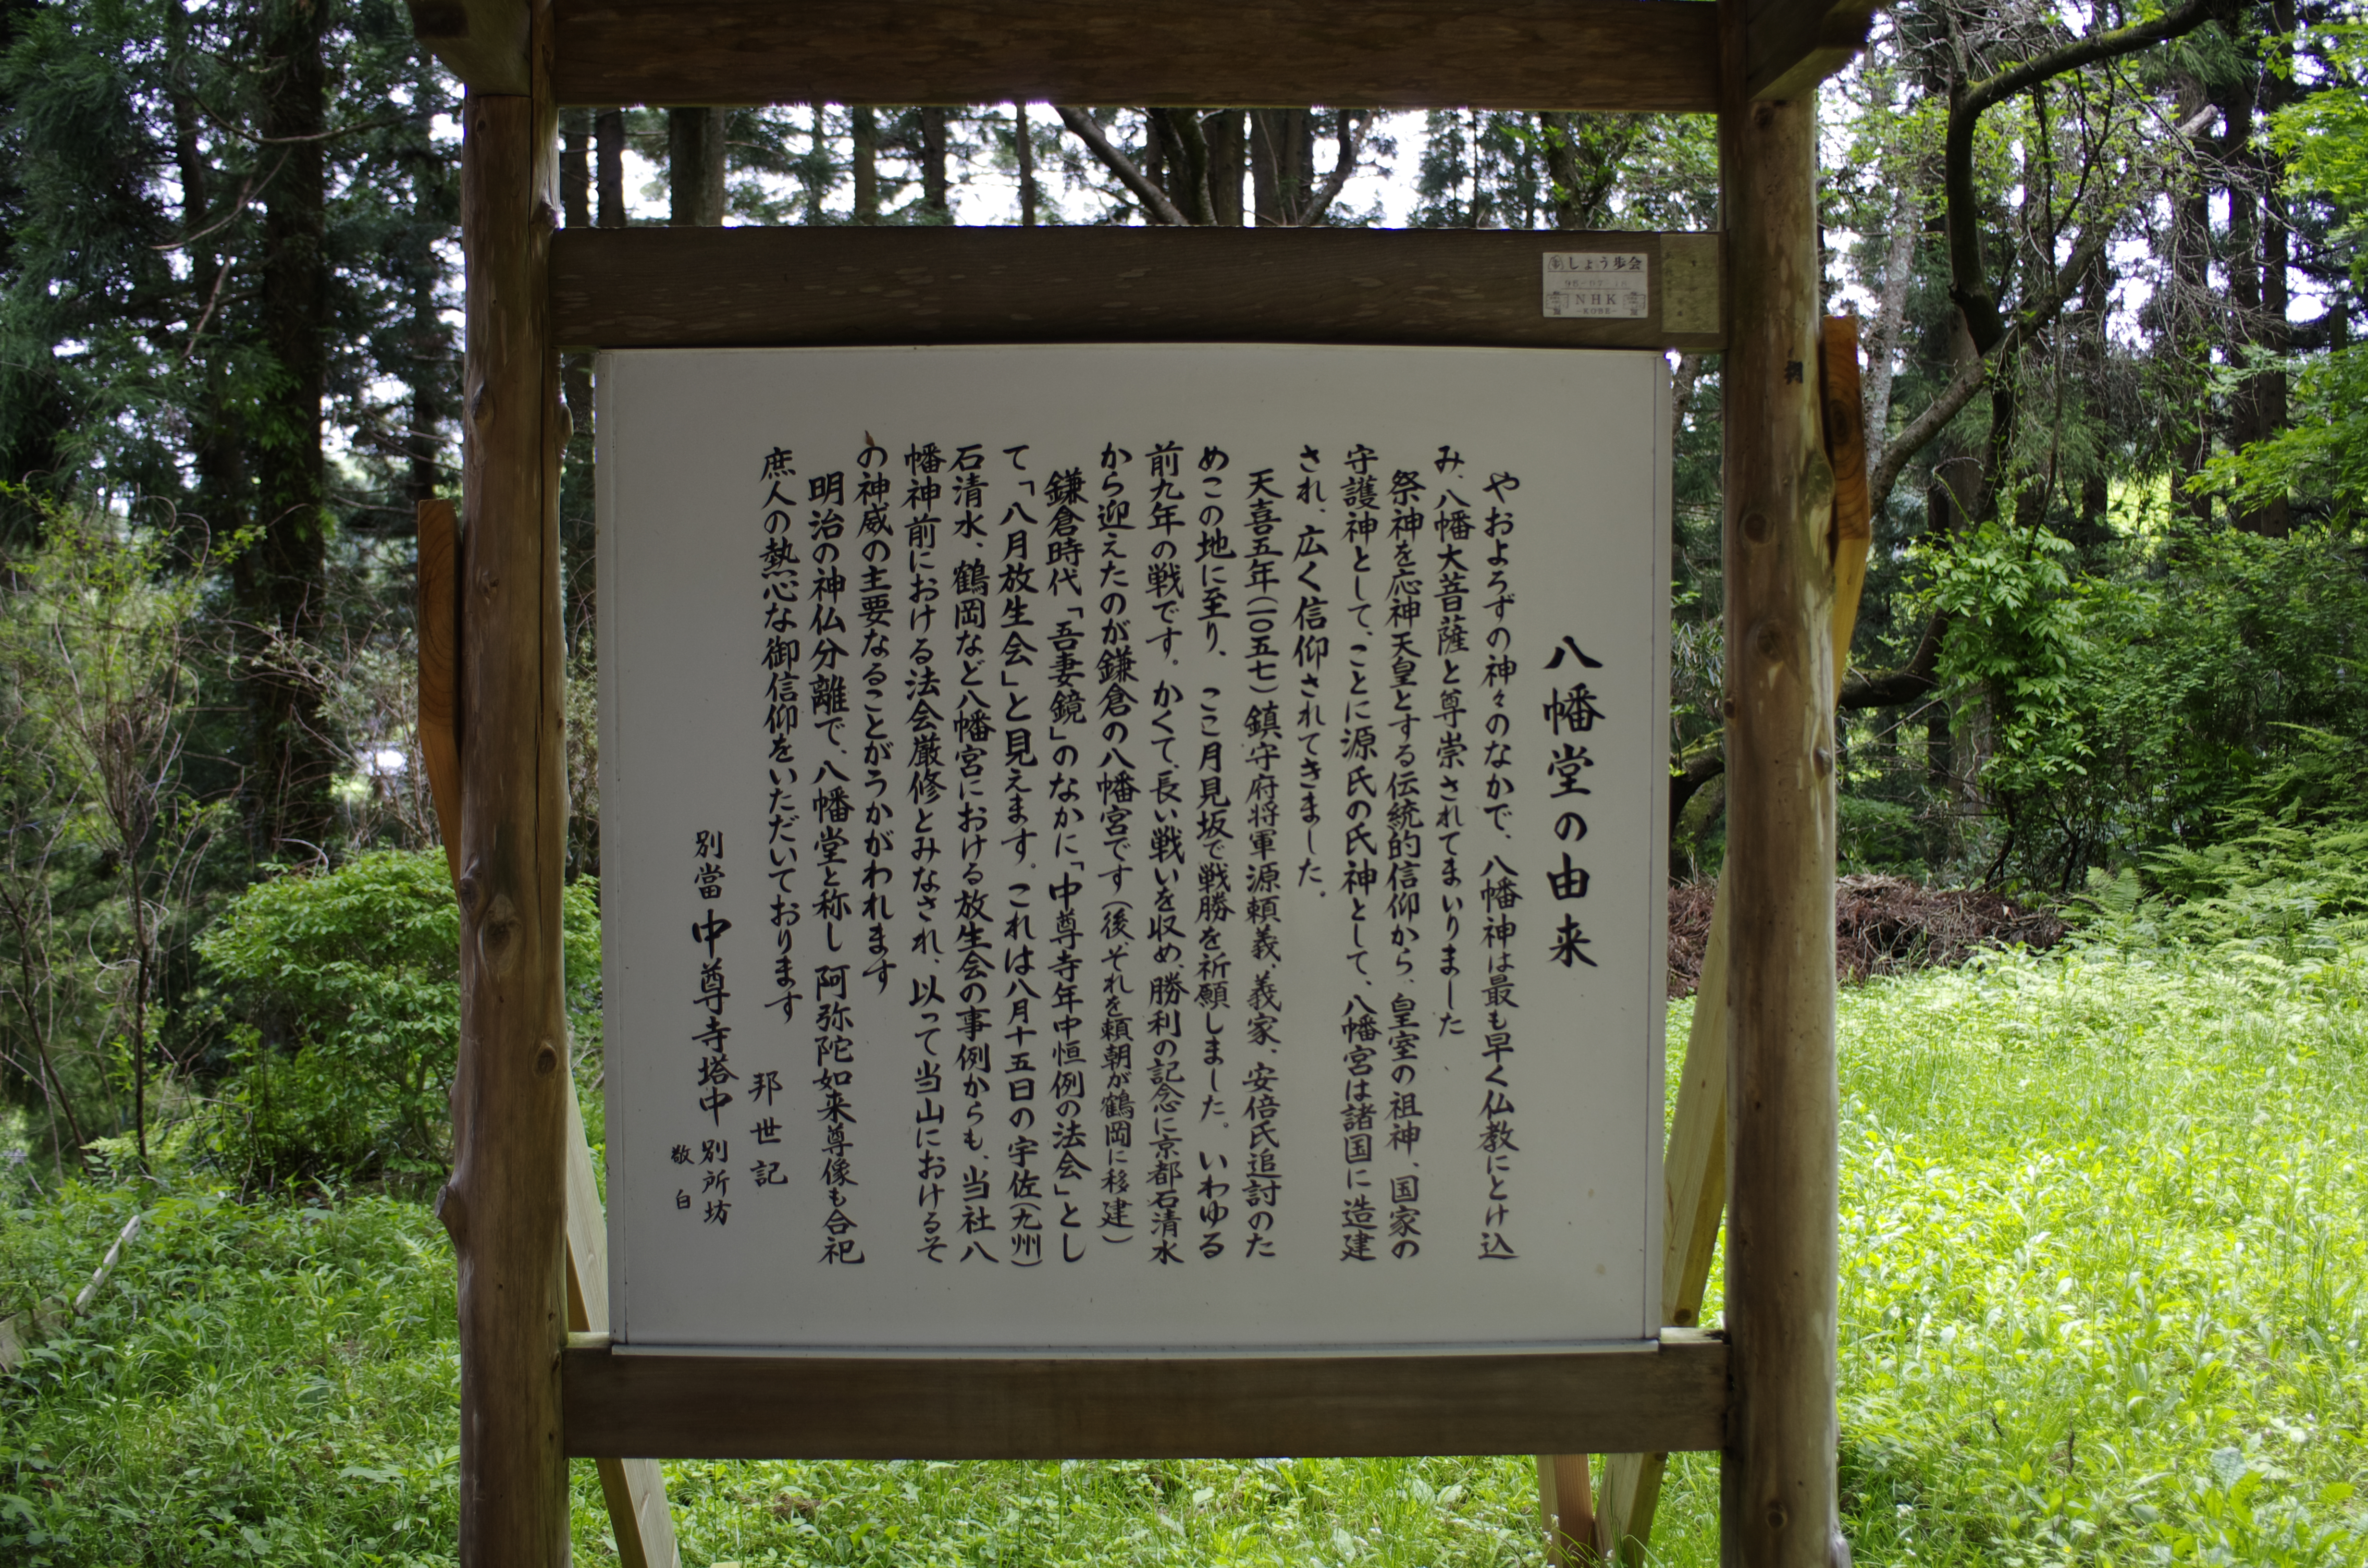 八幡堂の由来
やおよろずの神々のなかで、八幡神は最も早く仏教にとけ込
み、八幡大菩薩と尊崇されてまいりました
祭神を応神天皇とする伝統的信仰から、皇室の祖神、国家の
守護神として、ことに源氏の氏神として、八幡宮は諸国に造建
され、広く信仰されてきました。
天喜五年(一〇五七)鎮守府将軍源頼義、義家、安倍氏追討のた
めこの地に至り、ここ月見坂で戦勝を祈願しました。いわゆる
前九年の戦です。かくて、長い戦いを収め、勝利の記念に京都石清水
から迎えたのが鎌倉の八幡宮です(後、それを頼朝が鶴岡に移建)
鎌倉時代「吾妻鏡」のなかに「中尊寺年中恒例の法会」とし
て「八月放生会」と見えます。これは八月十五日の宇佐(九州)
石清水、鶴岡など八幡宮における放生会の事例からも、当社八
幡神前における法会厳修とみなされ、以って当山におけるそ
の神威の主要なることがうかがわれます
明治の神仏分離で、八幡堂と称し阿弥陀如来尊像も合祀
庶人の熱心な御信仰をいただいております
邦世記
別當 中尊寺塔中 別所坊
敬白
しょう歩会
NHK
-KOBE-